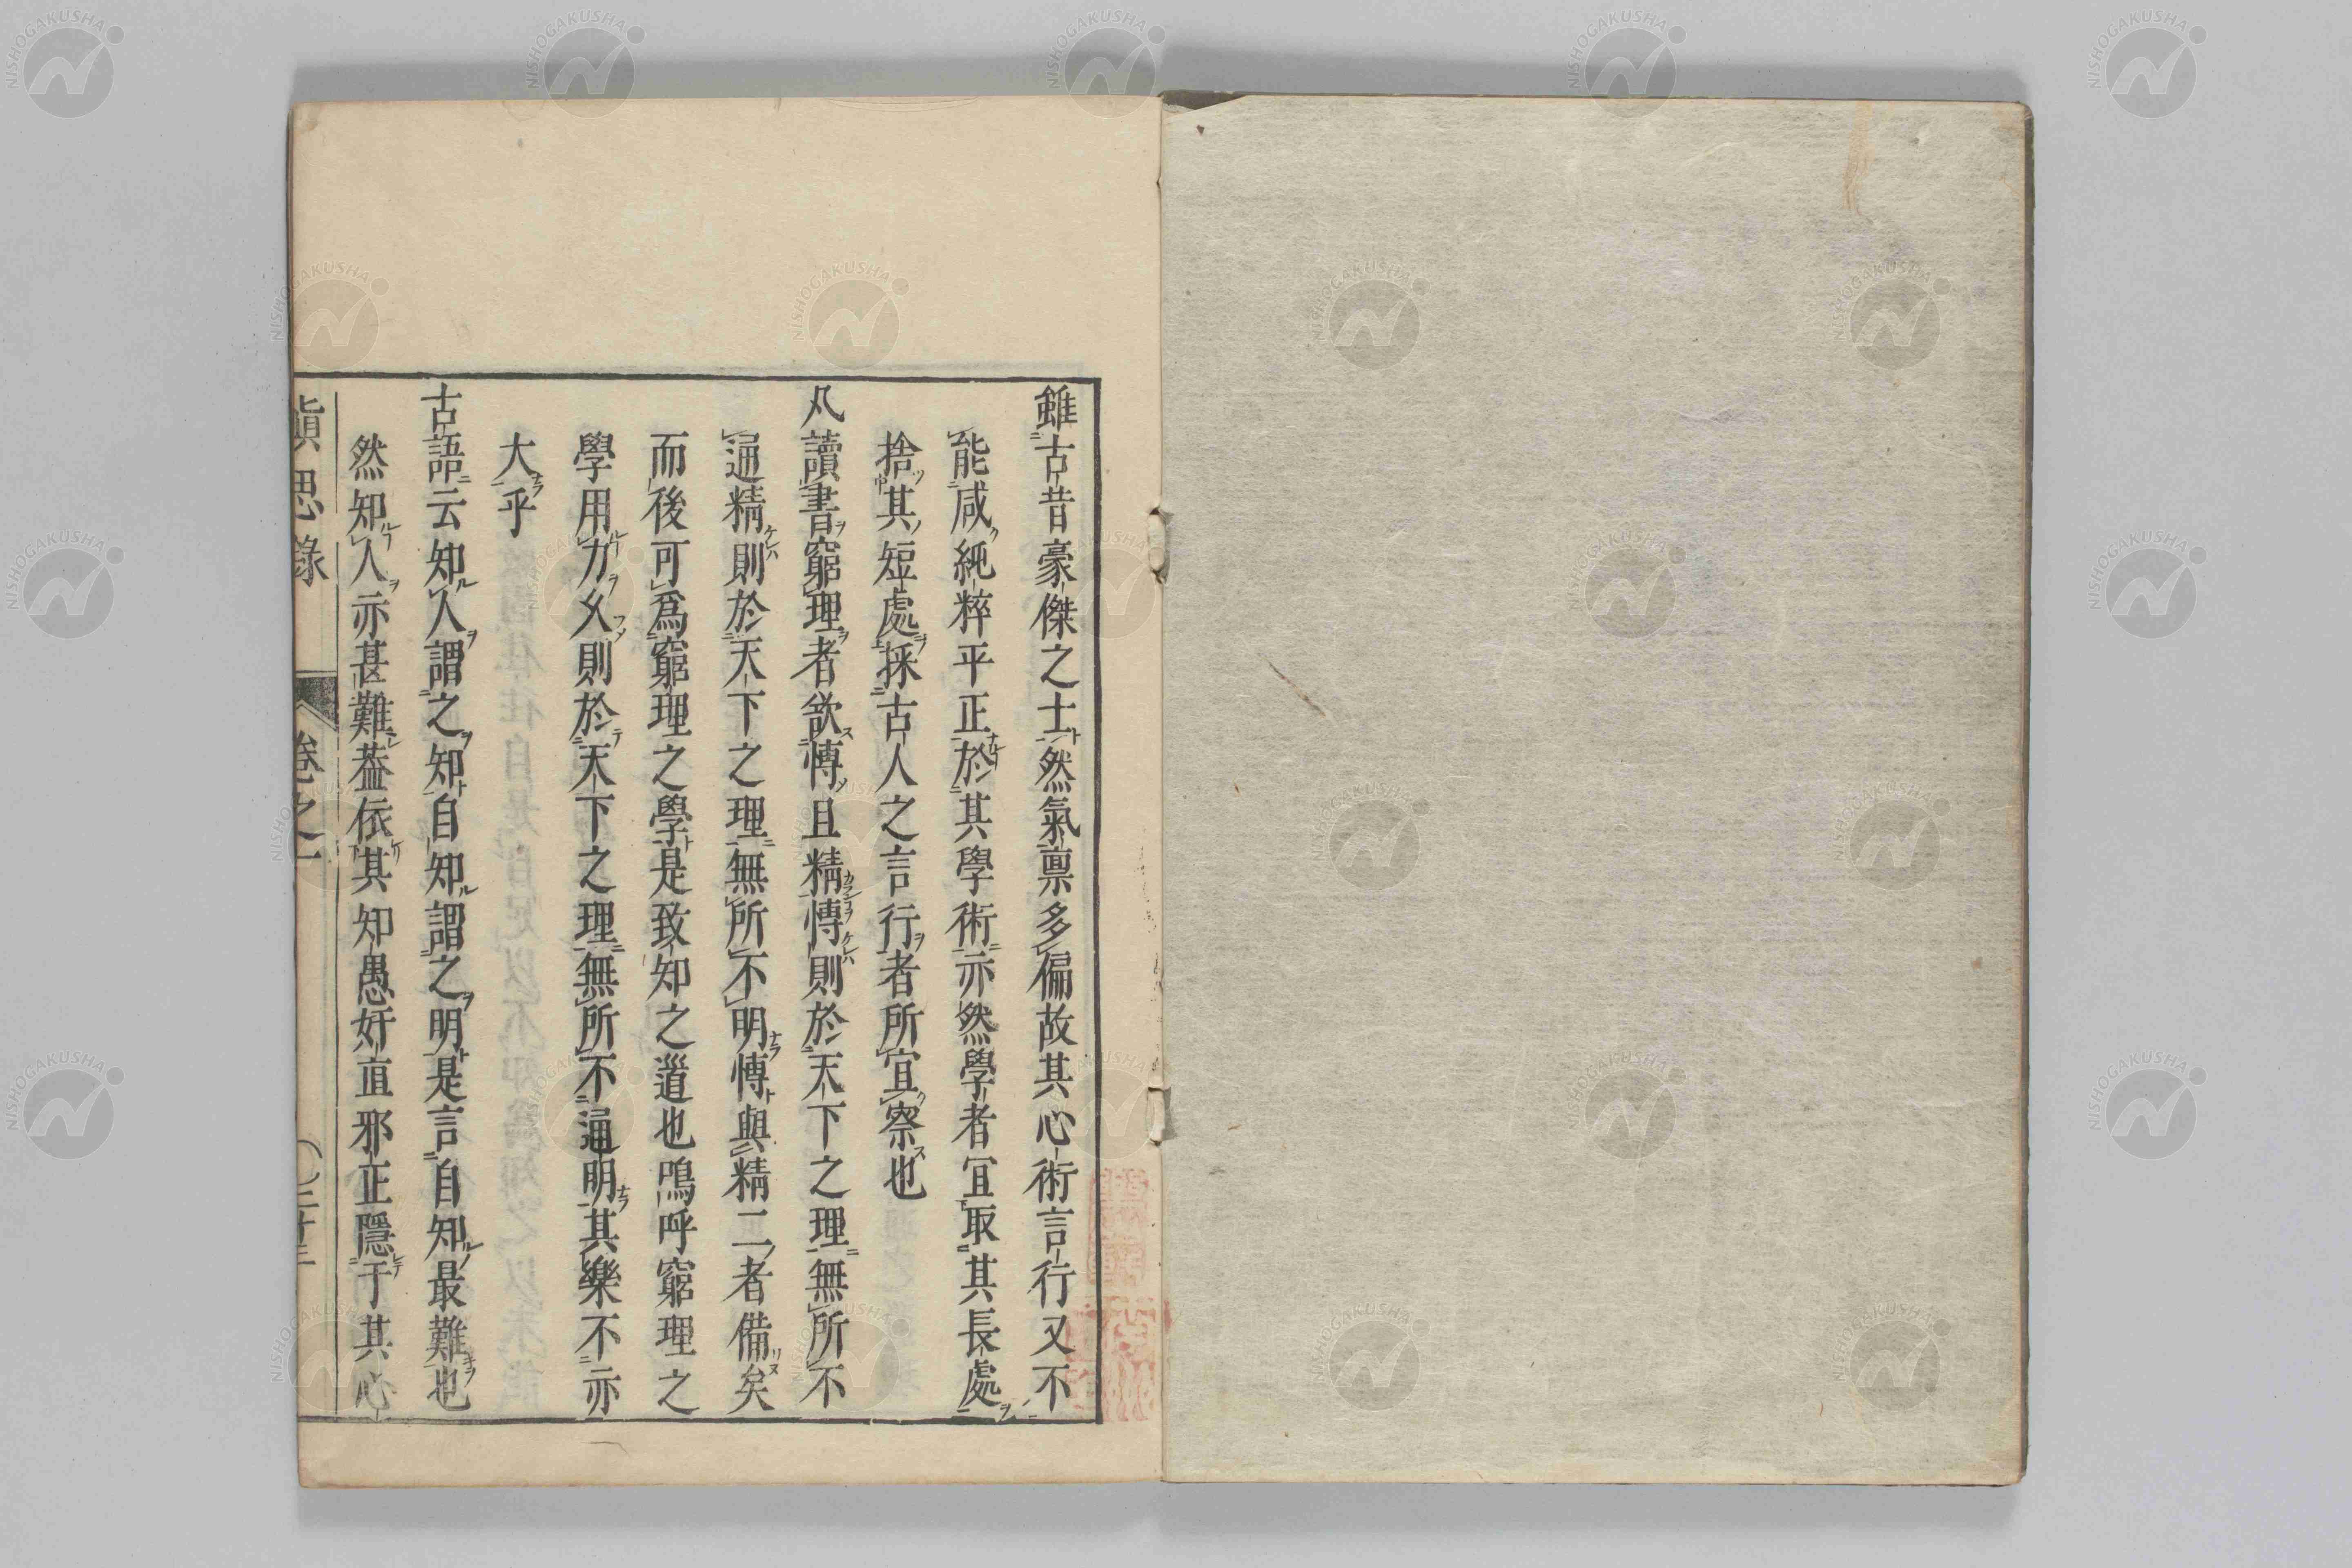 雖古昔豪傑之士然氣禀多偏故其心術言行又不
能咸純粹平正於其學術亦然學者宜取其長處
捨其短處採古人之言行者所宜察也
凡讀書窮理者欲博且精博則於天下之理無所不
通精則於天下之理無所不明博與精二者備矣
而後可爲窮理之學是致知之道也嗚呼窮理之
學用力久則於天下之理無所不通明其樂不亦
大乎
古語云知人謂之知自知謂之明是言自知最難也
然知人亦甚難蓋依其知愚奸直邪正隱于其心
愼思錄
卷之一
NISHOGAKUSHA